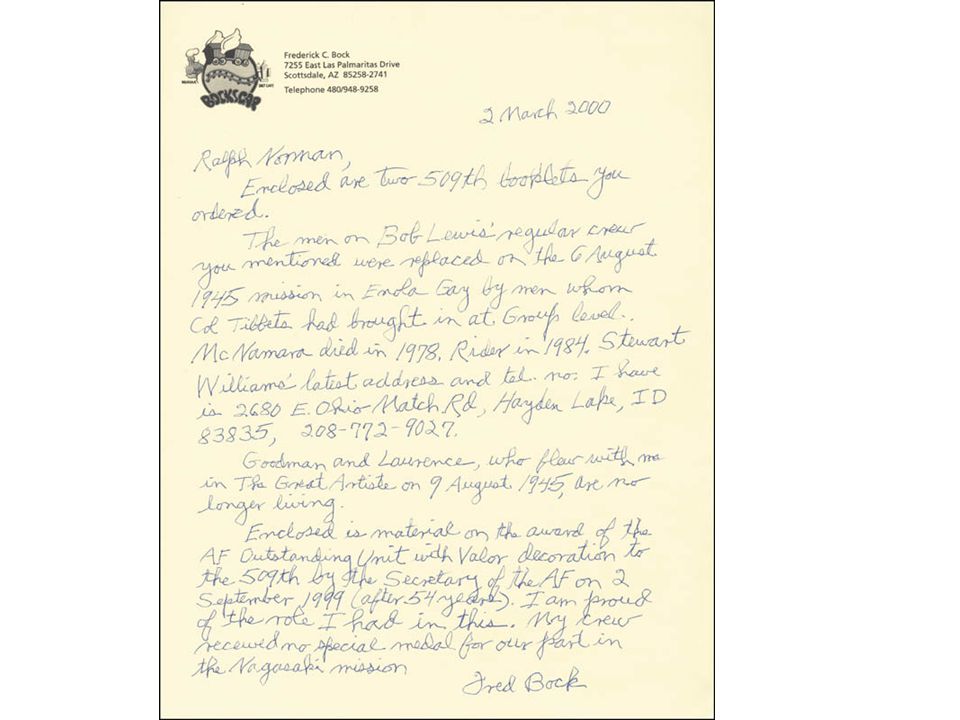 Frederick C. Bock
7255 East Las Palmaritas Drive
Scottsdale, AZ 85258-2741
Telephone 480/948-9258
BOCKSCAR
2 March 2000
Ralph Norman,
Enclosed are two 509th booklets you
ordered.
The men on Bob Lewis' regular crew
you mentioned were replaced on the 6 August
1945 mission in Enola Gay by men whom
Col Tibbets had brought in at Group level.
McNamara died in 1978. Rider in 1984. Stewart
Williams' latest address and tel. no. I have
is 2680 E. Ohio Match Rd, Hayden Lake, ID
83835, 208-772-9027.
Goodman and Laurence, who flew with me
in The Great Artiste on 9 August 1945, are no
longer living.
Enclosed is material on the award of the
AF Outstanding Unit with Valor decoration to
the 509th by the Secretary of the AF on 2
September 1999 (after 54 years). I am proud
of the role I had in this. My crew
received no special medal for our part in
the Nagasaki mission
Fred Bock